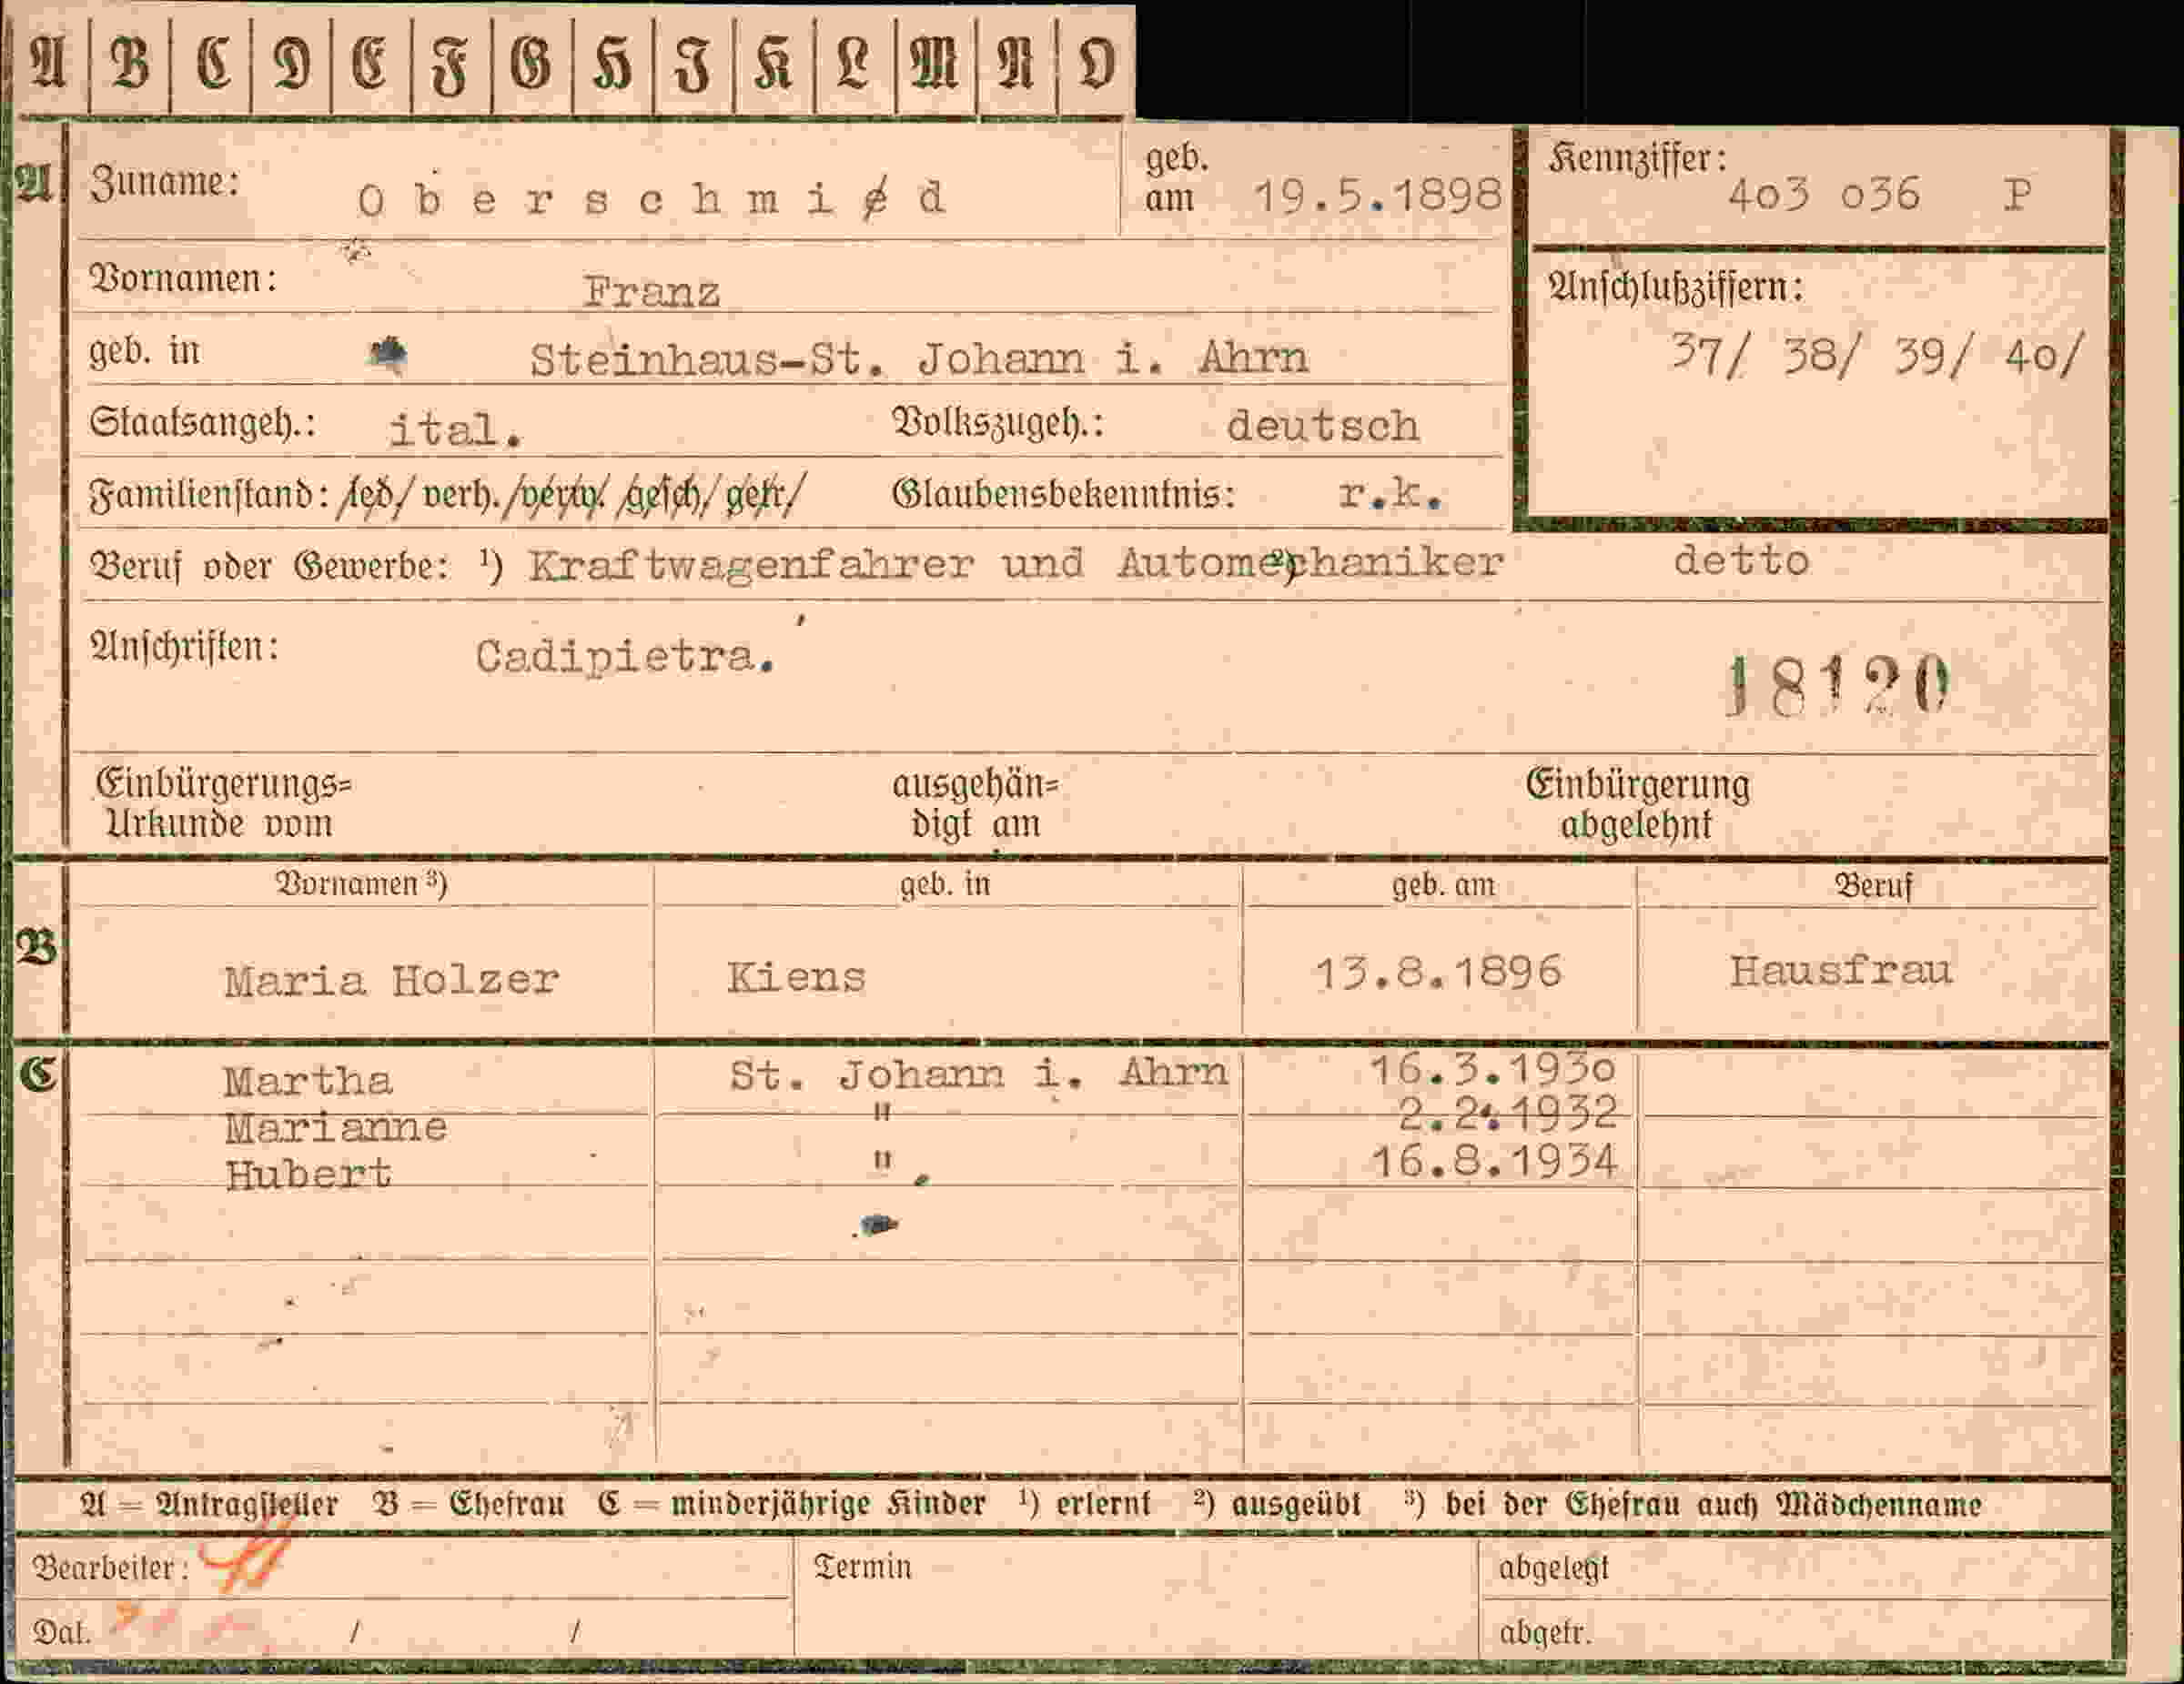 A B C D E F G H I K L M N O
A Zuname: Oberschmid geb. am 19.5.1898 Kennziffer: 4o3 o36 P
Vornamen: Franz Anschlußziffern:
geb. in Steinhaus-St. Johann i. Ahrn 37/ 38/ 39/ 4o/
Staatsangeh.: ital. Volkszugeh.: deutsch
Familienstand: led/ verh./verw. /gesch/ getr/ Glaubensbekenntnis: r.k.
Beruf oder Gewerbe: ¹) Kraftwagenfahrer und Automechaniker detto
Anschriften: Cadipietra. 18120
Einbürgerungs= ausgehän= Einbürgerung
Urkunde vom digt am abgelehnt
Vornamen ³) geb. in geb. am Beruf
B Maria Holzer Kiens 13.8.1896 Hausfrau
C Martha St. Johann i. Ahrn 16.3.193o
Marianne " 2.2.1932
Hubert " 16.8.1934
A = Antragsteller B = Ehefrau C = minderjährige Kinder ¹) erlernt ²) ausgeübt ³) bei der Ehefrau auch Mädchenname
Bearbeiter: Termin abgelegt
Dat. / / abgetr.